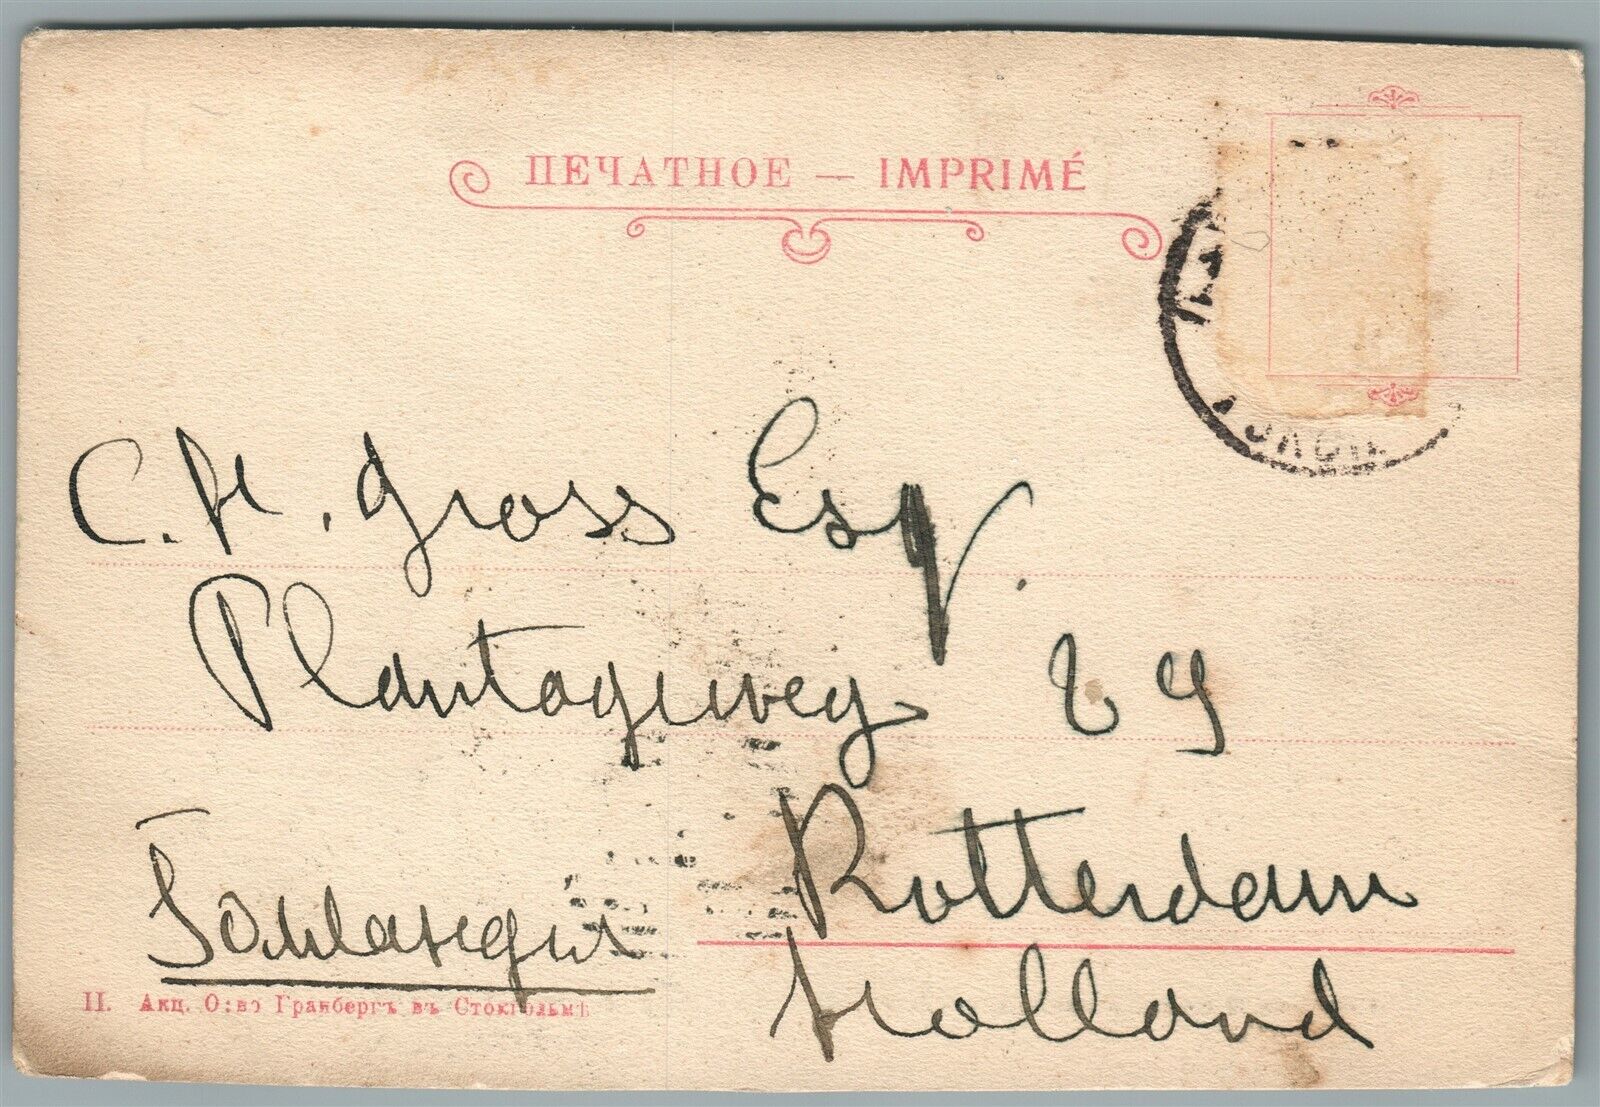 ПЕЧАТНОЕ — IMPRIMÉ
C. H. Gross Esq.
Plantageweg
Rotterdam
Holland
II. Акц. О:во Гранбергъ въ Стокгольмѣ